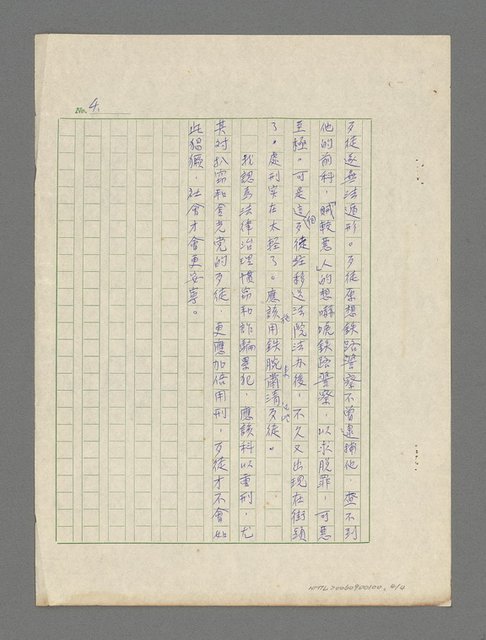 No. 4.
歹徒遂無法遁形。歹徒原想鉄路警察不曾逮捕他,查不到
他的前科,「賊教惡人」的想嚇唬鉄路警察,以求脫罪,可惡
至極。可是這個歹徒經移送法院法办後,不久又出現在街頭
了。處刑实在太輕了。應該用鉄腕肅清歹徒。
我認為法律治理慣窃和詐騙累犯,應該科以重刑,尤
其对扒窃和金光党的歹徒,更應加倍用刑,歹徒才不會如
此猖獗,社會才會更安寧。
NMTL20060900100, 4/4